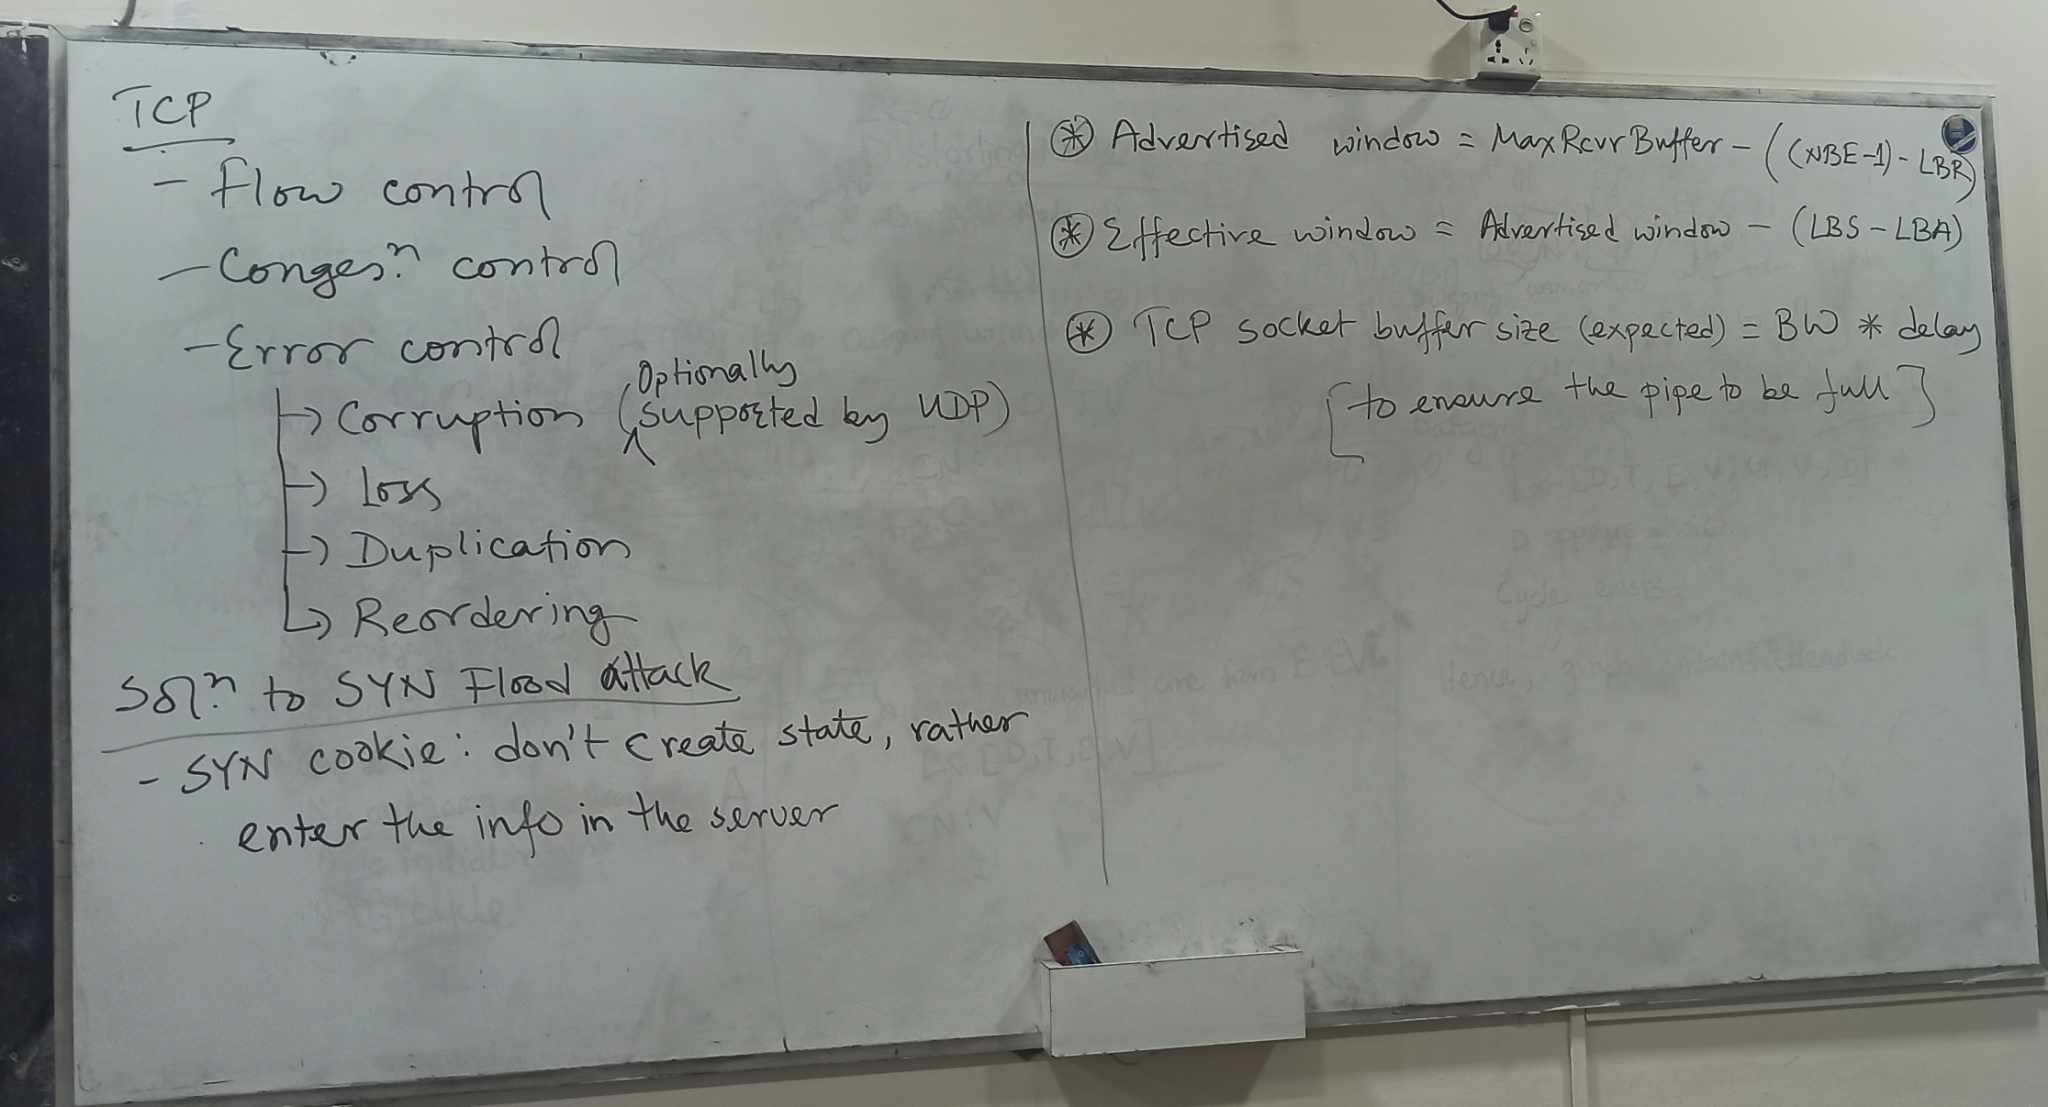 TCP
- Flow control
- Congesn control
- Error control
→ Corruption (Optionally supported by UDP)
→ Loss
→ Duplication
→ Reordering
Soln to SYN Flood attack
- SYN cookie: don't create state, rather
enter the info in the server
* Advertised window = MaxRcvrBuffer - ((NBE-1) - LBR)
* Effective window = Advertised window - (LBS - LBA)
* TCP socket buffer size (expected) = BW * delay
[to ensure the pipe to be full]
Cycle exists
Hence,